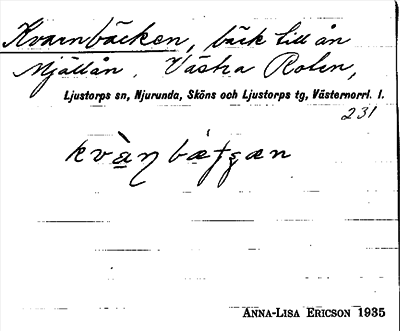 Kvarnbäcken, bäck till ån
Mjällån. Västra Rolen,
Ljustorps sn, Njurunda, Sköns och Ljustorps tg, Västernorrl. l.
231
ANNA-LISA ERICSON 1935